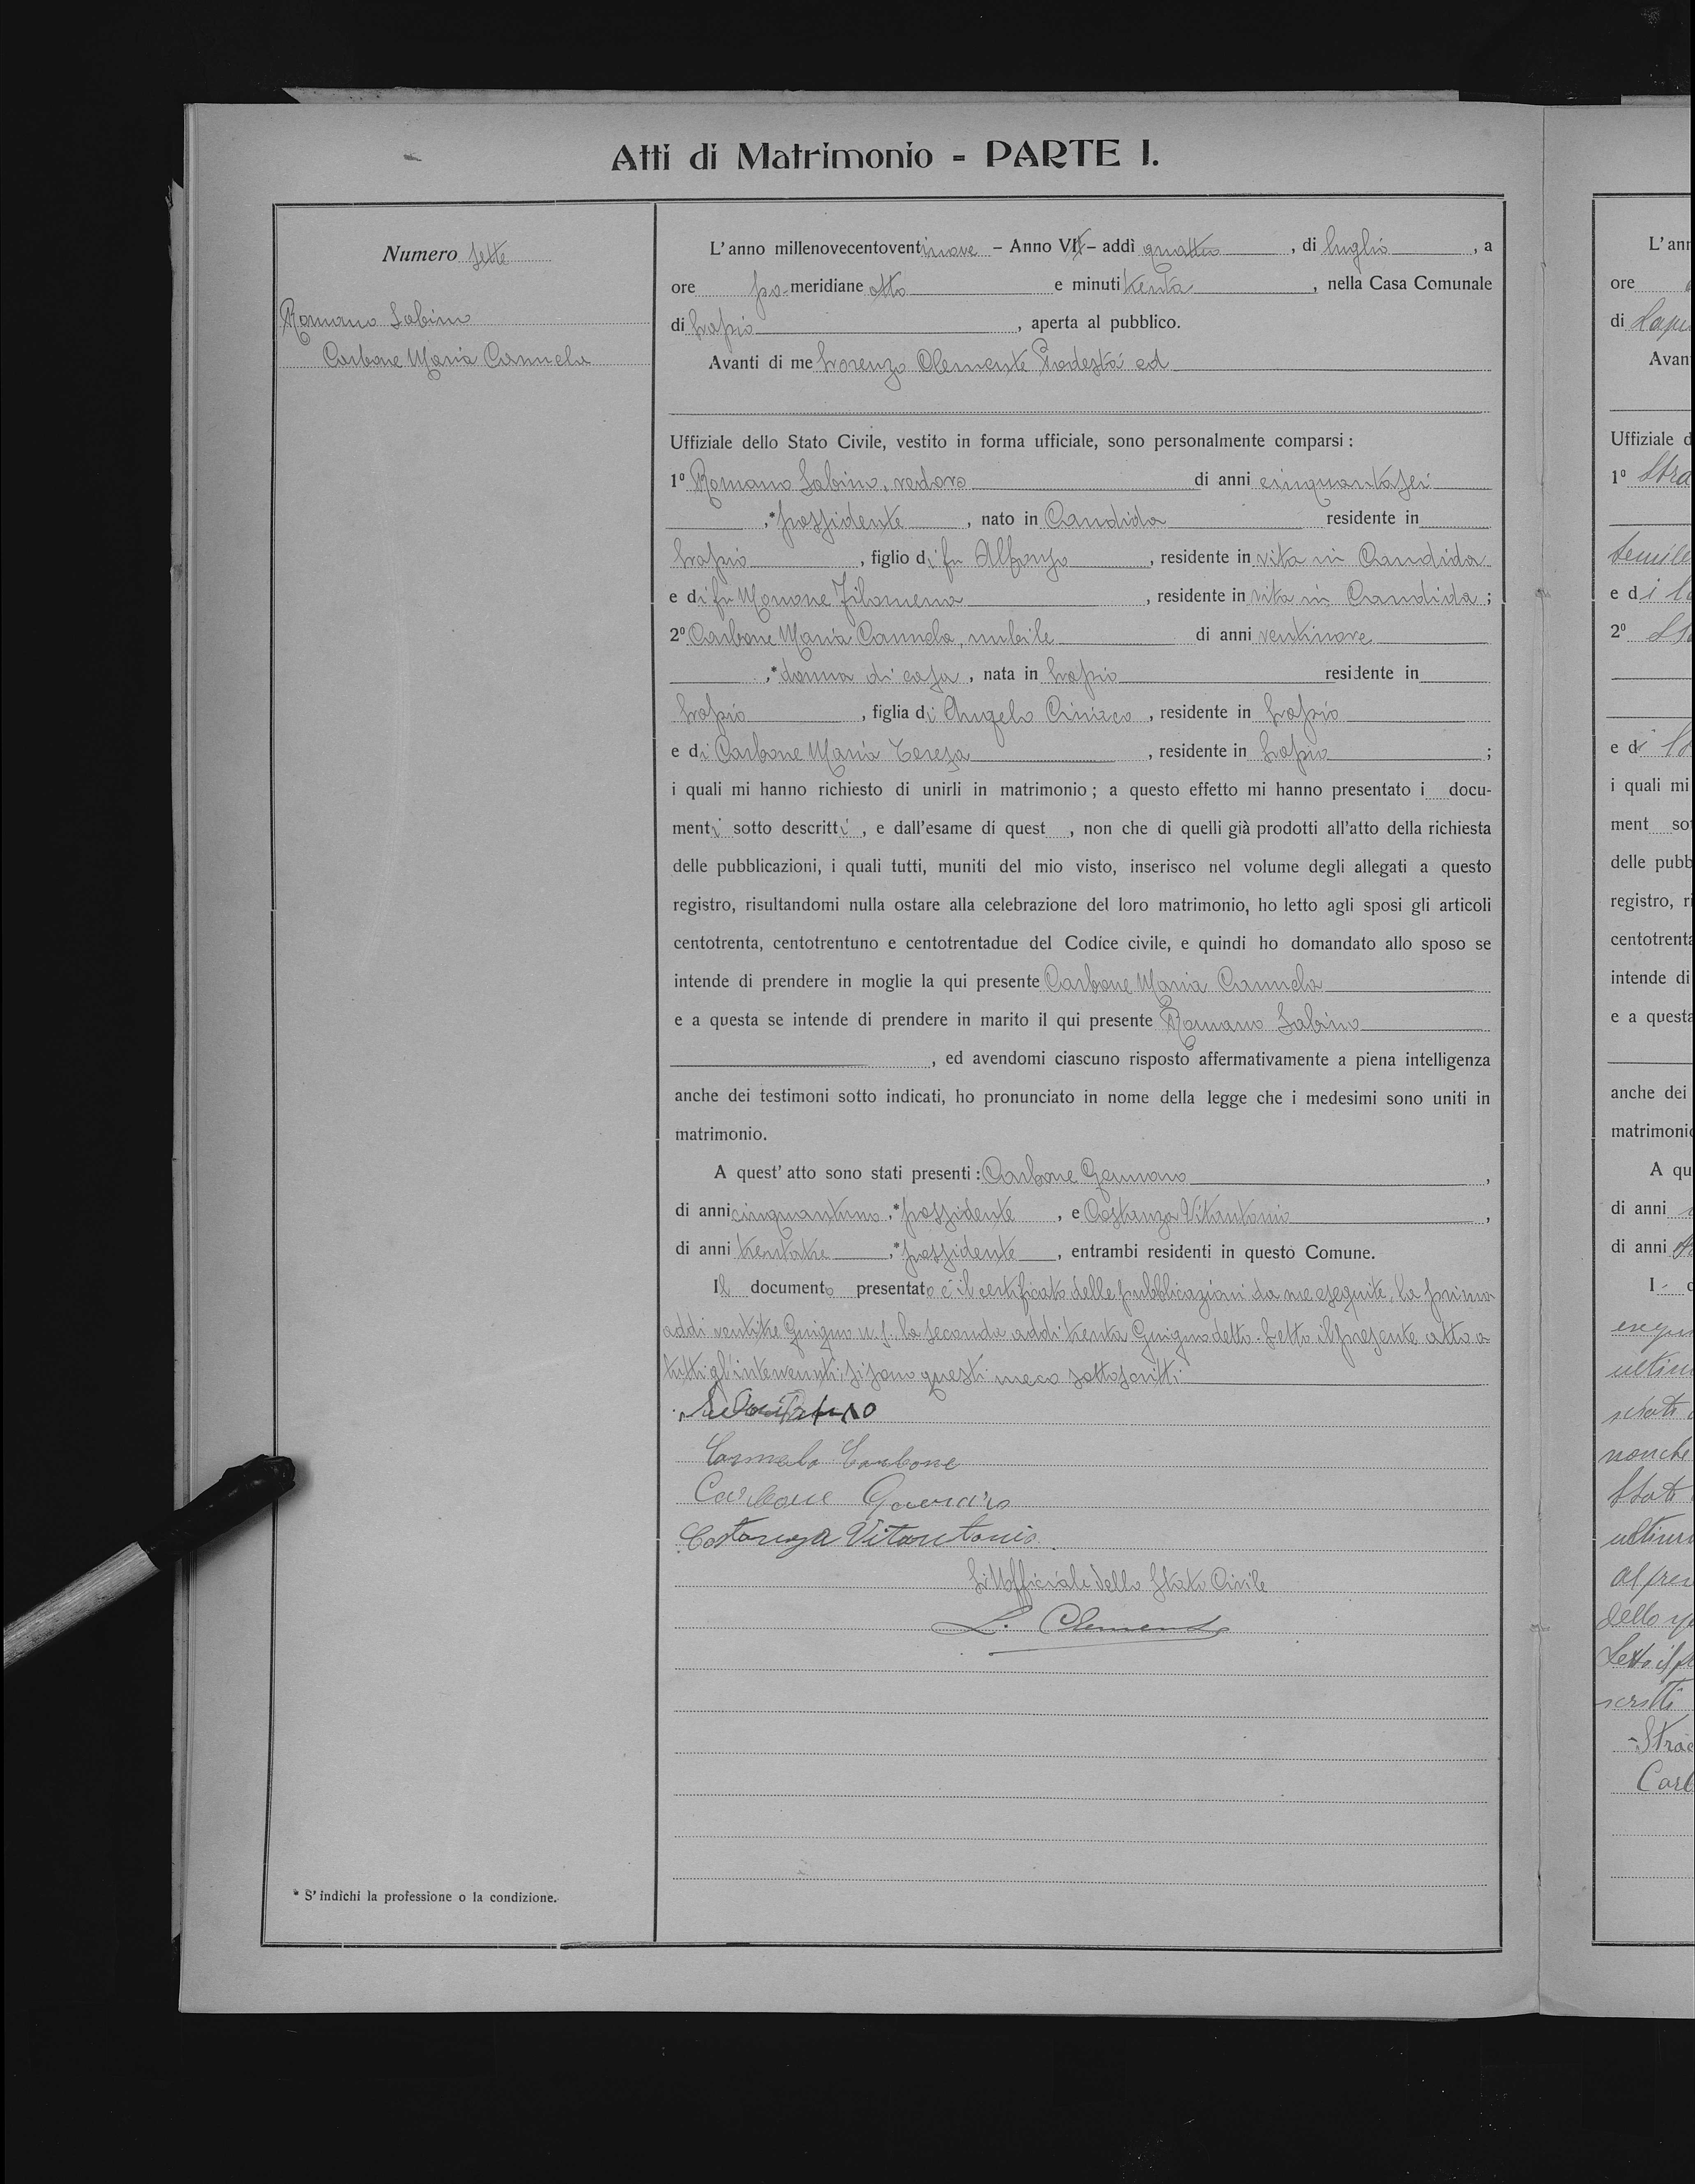 Atti di Matrimonio - PARTE I.
Numero sette
Romano Sabino
Carbone Maria Carmela
L'anno millenovecentoventinove - Anno VII - addì quattro, di luglio, a
ore po-meridiane otto e minuti trenta, nella Casa Comunale
di Lapio, aperta al pubblico.
Avanti di me Lorenzo Clemente Podestà ed
Uffiziale dello Stato Civile, vestito in forma ufficiale, sono personalmente comparsi :
1º Romano Sabino, vedovo di anni cinquantasei
,* possidente, nato in Candida residente in
Lapio, figlio di fu Alfonso, residente in vita in Candida
e di fu Filomena, residente in vita in Candida ;
2º Carbone Maria Carmela, nubile di anni ventinove
,* donna di casa, nata in Lapio residente in
Lapio, figlia di Angelo Ciriaco, residente in Lapio
e di Carbone Maria Teresa, residente in Lapio ;
i quali mi hanno richiesto di unirli in matrimonio ; a questo effetto mi hanno presentato i docu-
menti sotto descritti, e dall'esame di quest , non che di quelli già prodotti all'atto della richiesta
delle pubblicazioni, i quali tutti, muniti del mio visto, inserisco nel volume degli allegati a questo
registro, risultandomi nulla ostare alla celebrazione del loro matrimonio, ho letto agli sposi gli articoli
centotrenta, centotrentuno e centotrentadue del Codice civile, e quindi ho domandato allo sposo se
intende di prendere in moglie la qui presente Carbone Maria Carmela
e a questa se intende di prendere in marito il qui presente Romano Sabino
, ed avendomi ciascuno risposto affermativamente a piena intelligenza
anche dei testimoni sotto indicati, ho pronunciato in nome della legge che i medesimi sono uniti in
matrimonio.
A quest' atto sono stati presenti : Carbone Gennaro,
di anni cinquantuno,* possidente, e Costanza Vitantonio,
di anni trentatre,* possidente, entrambi residenti in questo Comune.
Il documento presentato è il certificato delle pubblicazioni da me eseguite, la prima
addì ventitre Giugno u. s., la seconda addì trenta Giugno detto. Letto il presente atto a
tutti gl'intervenuti, si sono questi meco sottoscritti.
Carmela Carbone
Carbone Gennaro
Costanza Vitantonio
L'Ufficiale dello Stato Civile
L. Clemente
* S'indichi la professione o la condizione.
L'ann
ore
di Lapi
Avan
Uffiziale d
1º Stra
e di
2º
e di
i quali mi
ment so
delle pubb
registro, ri
centotrenta
intende di
e a questa
anche dei
matrimonio
A qu
di anni
di anni
I
nonche
Stat
dello
Letto il
scritti
Strac
Carb